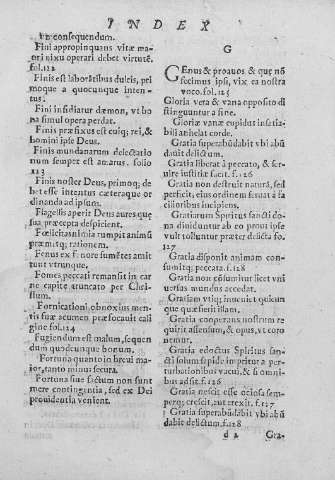 INDEX
in consequendum.
Fini appropinquans vitæ ma
iori nixu operari debet virtutē.
fol.122
Finis est laboribus dulcis, pri
moque a quocunque inten-
tus.
Fini insidiatur dæmon, vt bo
na simul opera perdat.
Finis præfixus est cuiq; rei, &
homini ipse Deus.
Finis mundanarum delectatio
num semper est amarus. folio
123
Finis noster Deus, primoq; de
bet esse intentus cæteraque or
dinanda ad ipsum.
Flagellis aperit Deus aures que
sua præcepta despicient.
Fœlicitas nimia rumpit animū
præmitq; rationem.
Fenus ex f nore sumētes amit
tunt vtrunque.
Fomes peccati remansit in car
ne capite truncato per Chri-
stum.
Fornicationi obnoxius men-
tis suæ acumen præfocauit cali
gine fol.124
Fugiendum est malum, sequen
dum quodcunque bonum.
Fortuna quanto in breui ma-
ior, tanto minus secura.
Fortuna siue fictum non sunt
mere contingentia, sed ex Dei
prouidentia venient.
G
GEnus & proauos & quę nō
fecimus ipsi, vix ea nostra
voco. fol.125
Gloria vera & vana opposito di
stinguuntur a fine.
Gloriæ vanæ cupidus insatia-
bili anhelat corde.
Gratia superabūdabit vbi abū
dauit delictum.
Gratia liberat à peccato, & ser-
uire iustitiæ facit. f.126
Gratia non destruit natura, sed
perficit, eius ordinem seruat à fa
cilioribus incipiens.
Gratiarum Spiritus sancti do-
na diuiduntur ab eo prout ipse
vult tolluntur præter delicta fo.
127
Gratia disponit animam con-
sumitq; peccata. f.128
Gratia non cōsumitur licet vni
uersus mundus accedat.
Gratiam vtiq; inuenit quicun
que quæsierit illam.
Gratia cooperans nostrum re
quirit assensum, & opus, vt coro
nemur.
Gratia edoctus Spiritus san-
cti solum sapide impetitur a per-
turbationibus vacui, & si omni-
bus adsit. f.126
Gratia nescit esse ociosa sem-
perq; crescit, aut crexit. f.127
Gratia superabūdābit vbi abū
dabit delictum. f.128
d 2 Gra-